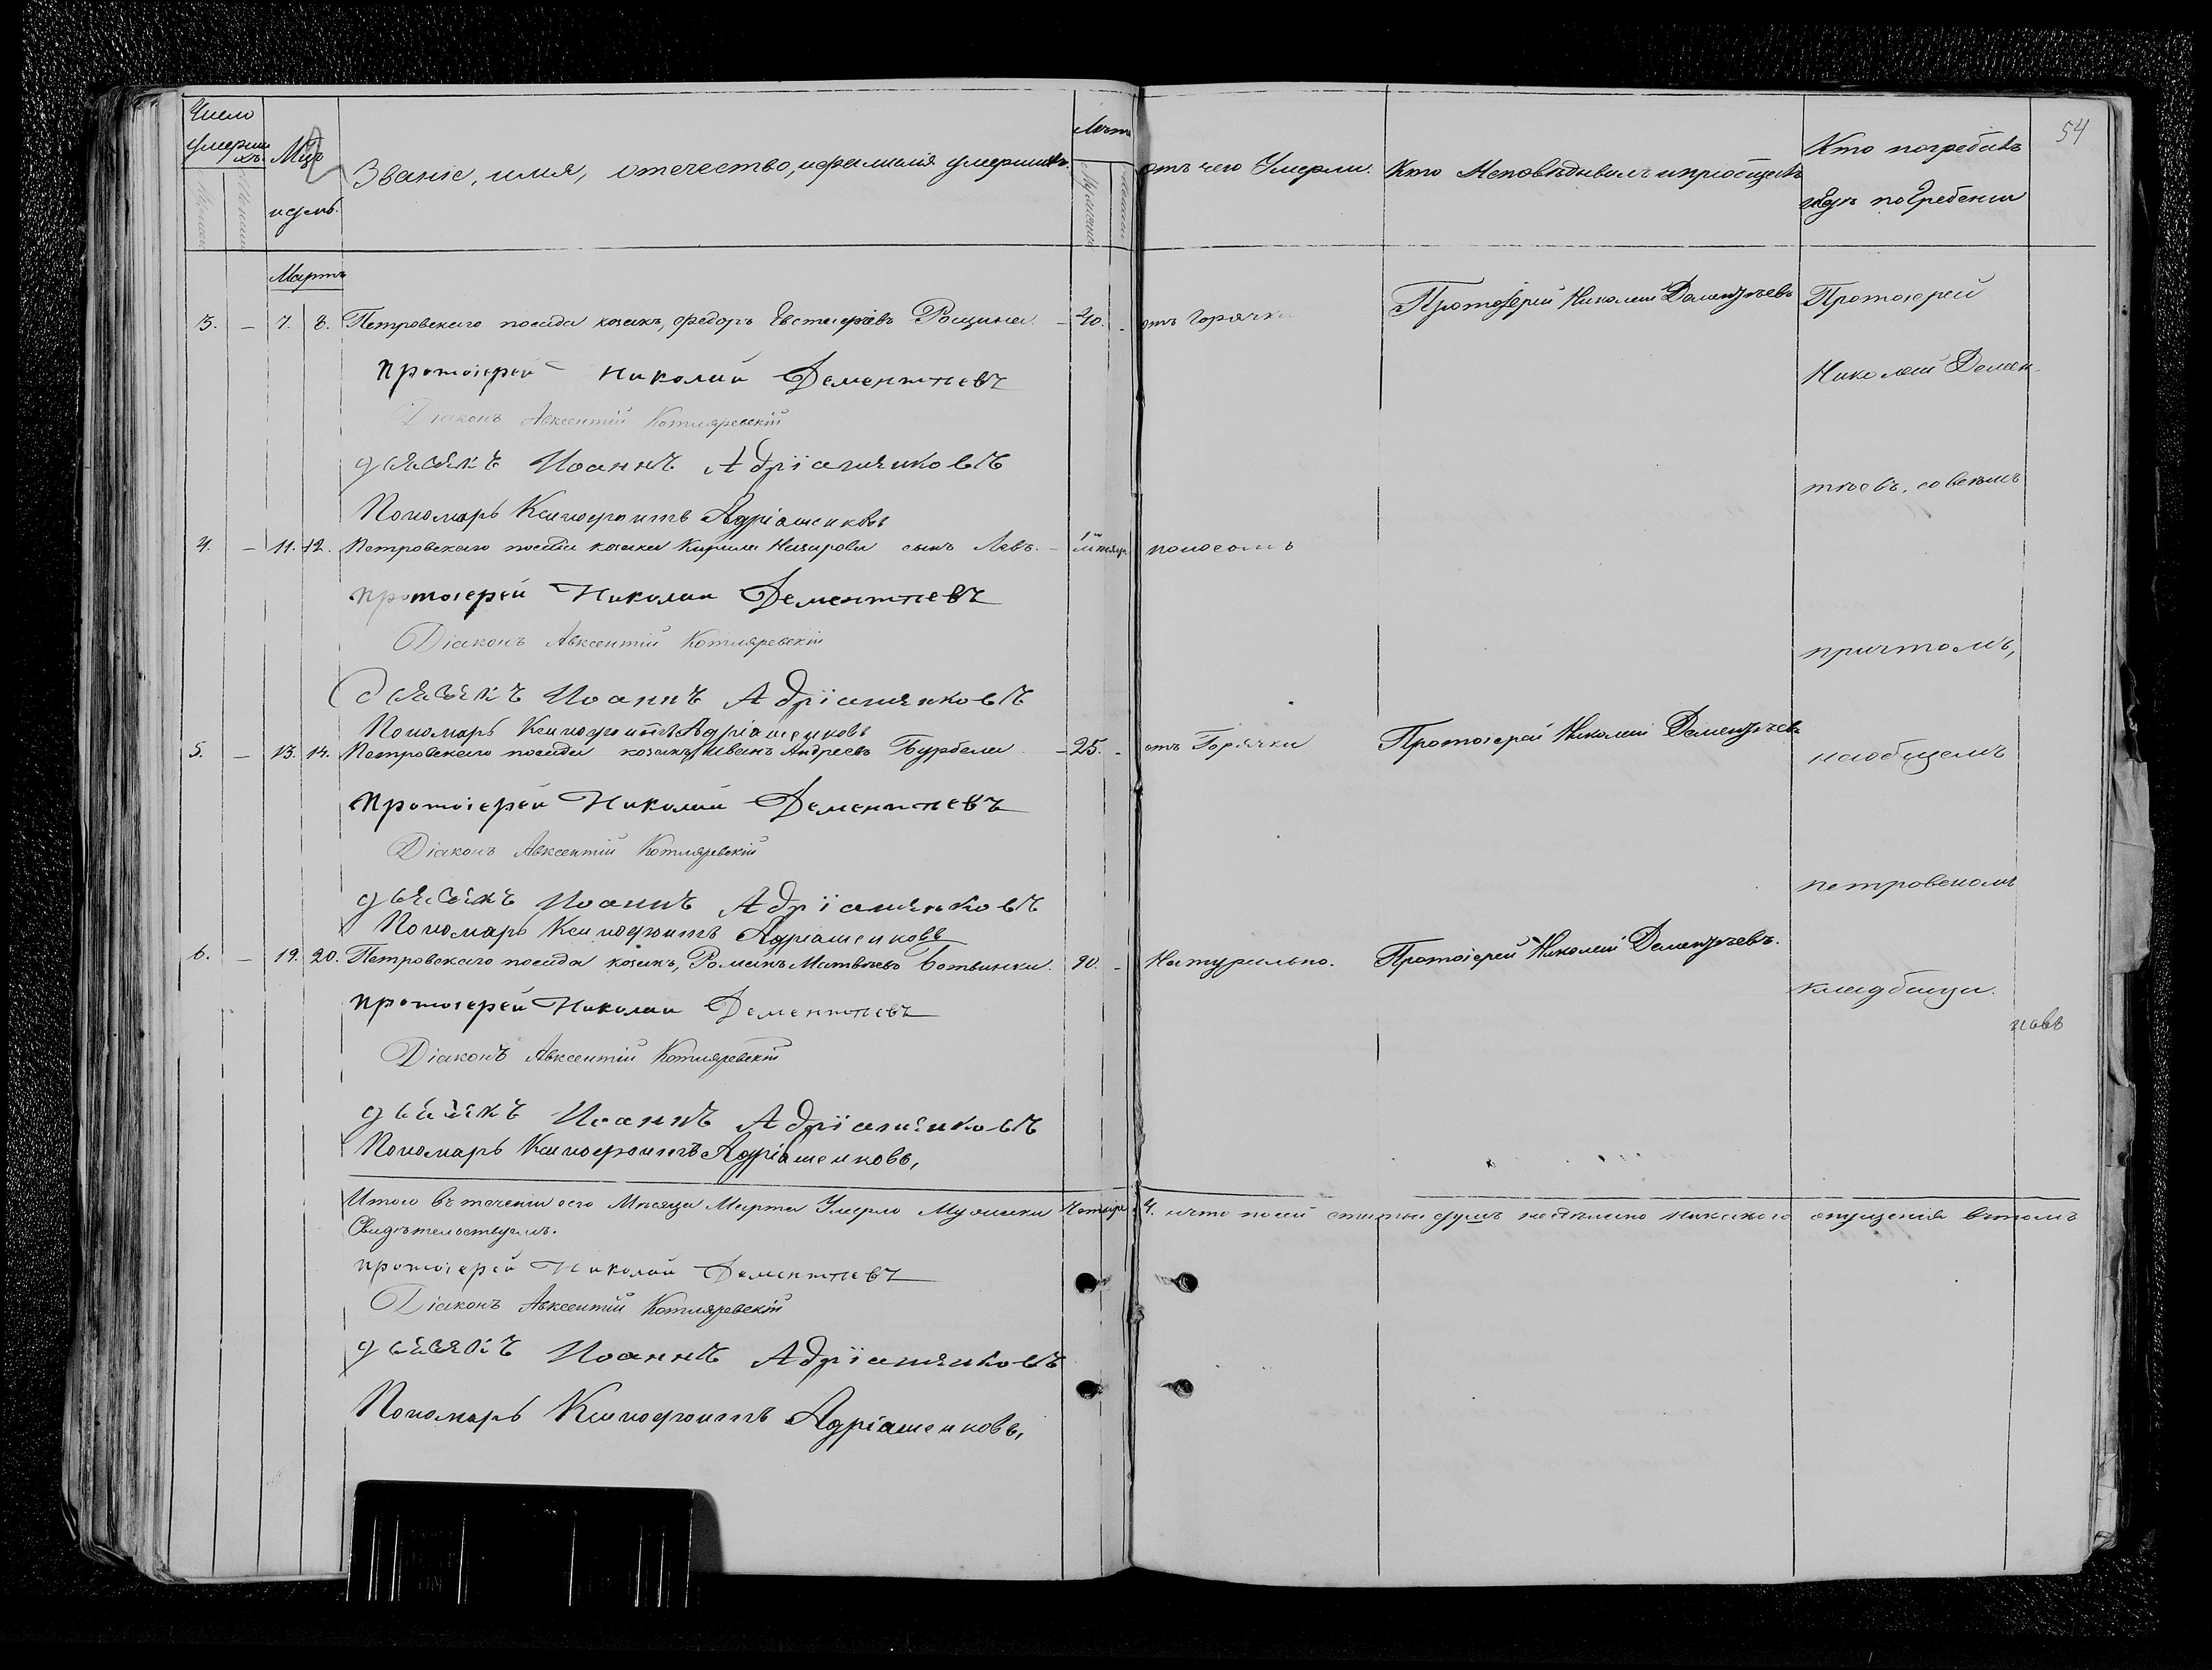 Число умершихъ
Мцъ и день.
Званіе, имя, отечество, и фамилія умершихъ.
Лѣта
отъ чего Умерли.
Кто Исповѣдывалъ и пріобщалъ
Кто погребалъ
и гдѣ погребены
54
Мужеска
Женска
Мартъ
3. — 7. 8. Петровскаго посада козакъ, Федоръ Евстафіевъ Рощина — 40. - отъ Горячки Протоіерей Николай Дементьевъ Протоіерей
Протоіерей Николай Дементьевъ
Николай Демен-
Діаконъ Авксентій Котляревскій
дьячекъ Иоаннъ Адріашенковъ
тьевъ, со всѣмъ
Пономарь Ксенофонтъ Адріашенковъ
4. — 11. 12. Петровскаго посада козака Кирила Назарова сынъ Левъ. — 1 поносомъ
Протоіерей Николай Дементьевъ
Діаконъ Авксентій Котляревскій
причтомъ,
дьячекъ Иоаннъ Адріашенковъ
Пономарь Ксенофонтъ Адріашенковъ
5. — 13. 14. Петровскаго посада козакъ, Иванъ Андреевъ Бурбела — 25. - отъ Горячки Протоіерей Николай Дементьевъ
на общемъ
Протоіерей Николай Дементьевъ
Діаконъ Авксентій Котляревскій
петровскомъ
дьячекъ Иоаннъ Адріашенковъ
Пономарь Ксенофонтъ Адріашенковъ
6. — 19. 20. Петровскаго посада козакъ, Романъ Матвѣевъ Ботвинка. 90. - Натурально. Протоіерей Николай Дементьевъ.
кладбищи.
Протоіерей Николай Дементьевъ
Діаконъ Авксентій Котляревскій
дьячекъ Иоаннъ Адріашенковъ
Пономарь Ксенофонтъ Адріашенковъ,
Итого въ теченіи сего Мѣсяца Марта Умерло Мужеска Четыре 4. и что по сей статьи душъ не сдѣлано никакого опущенія въ томъ
Свидѣтельствуемъ.
Протоіерей Николай Дементьевъ
Діаконъ Авксентій Котляревскій
дьячекъ Иоаннъ Адріашенковъ
Пономарь Ксенофонтъ Адріашенковъ,